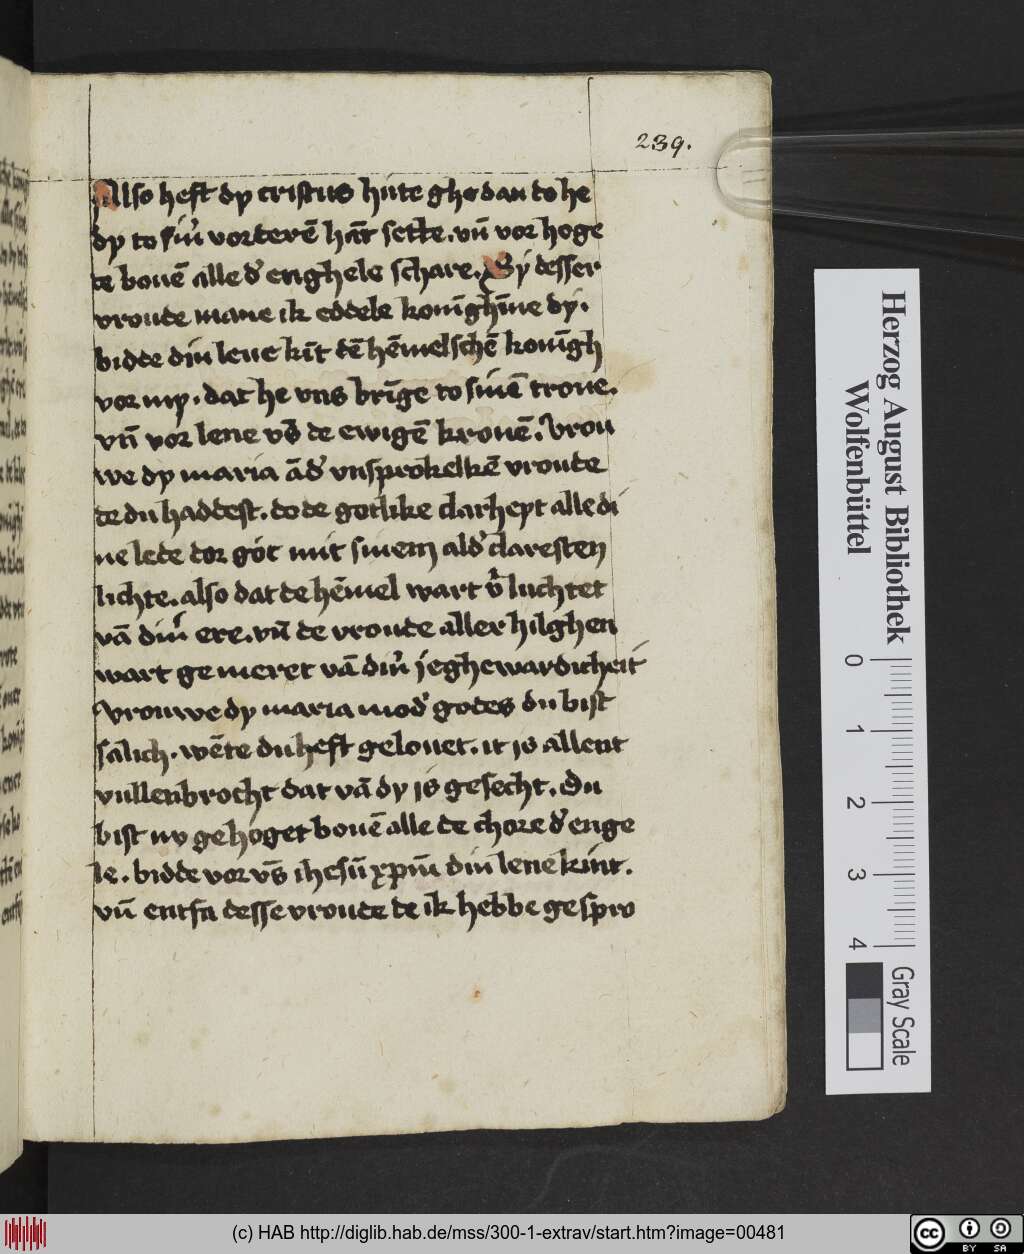 239.
Also heft dy cristus hute ghedan do he
dy to sin̄ vorderē hāt sette. vn̄ vor hoge
te bouē alle d' enghele schare. By desser
vroude mane ik eddele konīghīne dy.
bidde din leue kīt dē hēmelschē konīgh
vor my. dat he vns brīge to sinē trone.
vn̄ vor lene vs̄ de ewigē kronē. Vrou
we dy maria ād' vnsprokelkē vroude
de du haddest. do de gotlike clarheyt alle di
ne lede dor got mit sinem ald' claresten
lichte. also dat de hēmel wart v'luchtet
vā din' ere. vn̄ de vroude aller hilghen
wart ge meret vā din' jeghewardicheit
Vrouwe dy maria mod' godes du bist
salich. wēte du heft gelouet. it is allent
vullenbrocht dat vā dy is gesecht. Du
bist nv gehoget bouē alle de chore d' enge
le. bidde vor vs̄ ihesū xp̄m din leue kint.
vn̄ entfa desse vroude de ik hebbe gespro
Herzog August Bibliothek
Wolfenbüttel
0 1 2 3 4
Gray Scale
(c) HAB http://diglib.hab.de/mss/300-1-extrav/start.htm?image=00481
cc BY SA